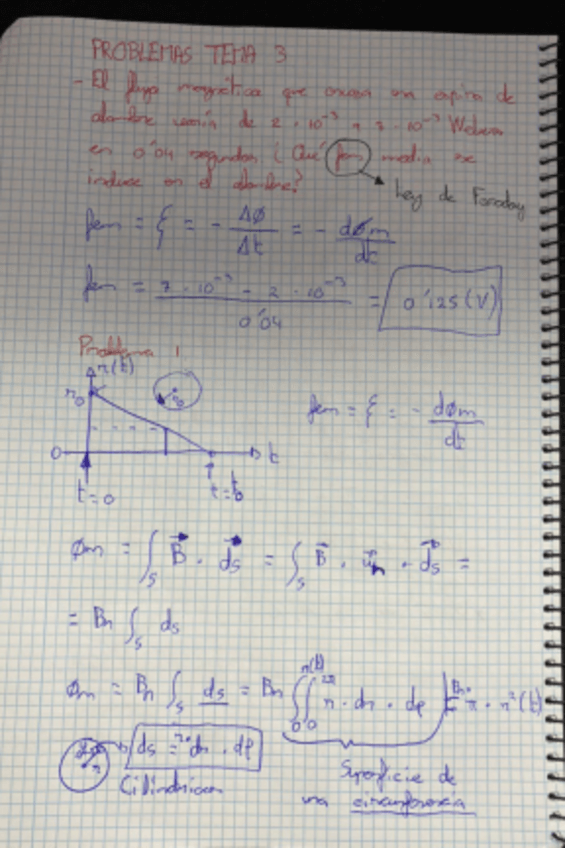 PROBLEMAS TEMA 3
- El flujo magnético que cruza una espira de
alambre varía de 2 · 10⁻³ a 7 · 10⁻³ Webers
en 0'04 segundos ¿Qué fem media se
induce en el alambre?
Ley de Faraday
fem = ξ = - Δϕ/Δt = - dϕm/dt
fem = (7 · 10⁻³ - 2 · 10⁻³)/0'04 = 0'125 (V)
Problema 1
r(t)
r₀
r₀
0
t
t=0
t=t₀
fem = ξ = - dϕm/dt
ϕm = ∫s B⃗ · ds⃗ = ∫s B⃗ · u⃗n · ds⃗ =
= Bn ∫s ds
ϕm = Bn ∫s ds = Bn ∫₀^r(t) ∫₀^2π r · dr · dφ = Bn · π · r²(t)
r
ds = r · dr · dφ
Cilíndricas
Superficie de
una circunferencia